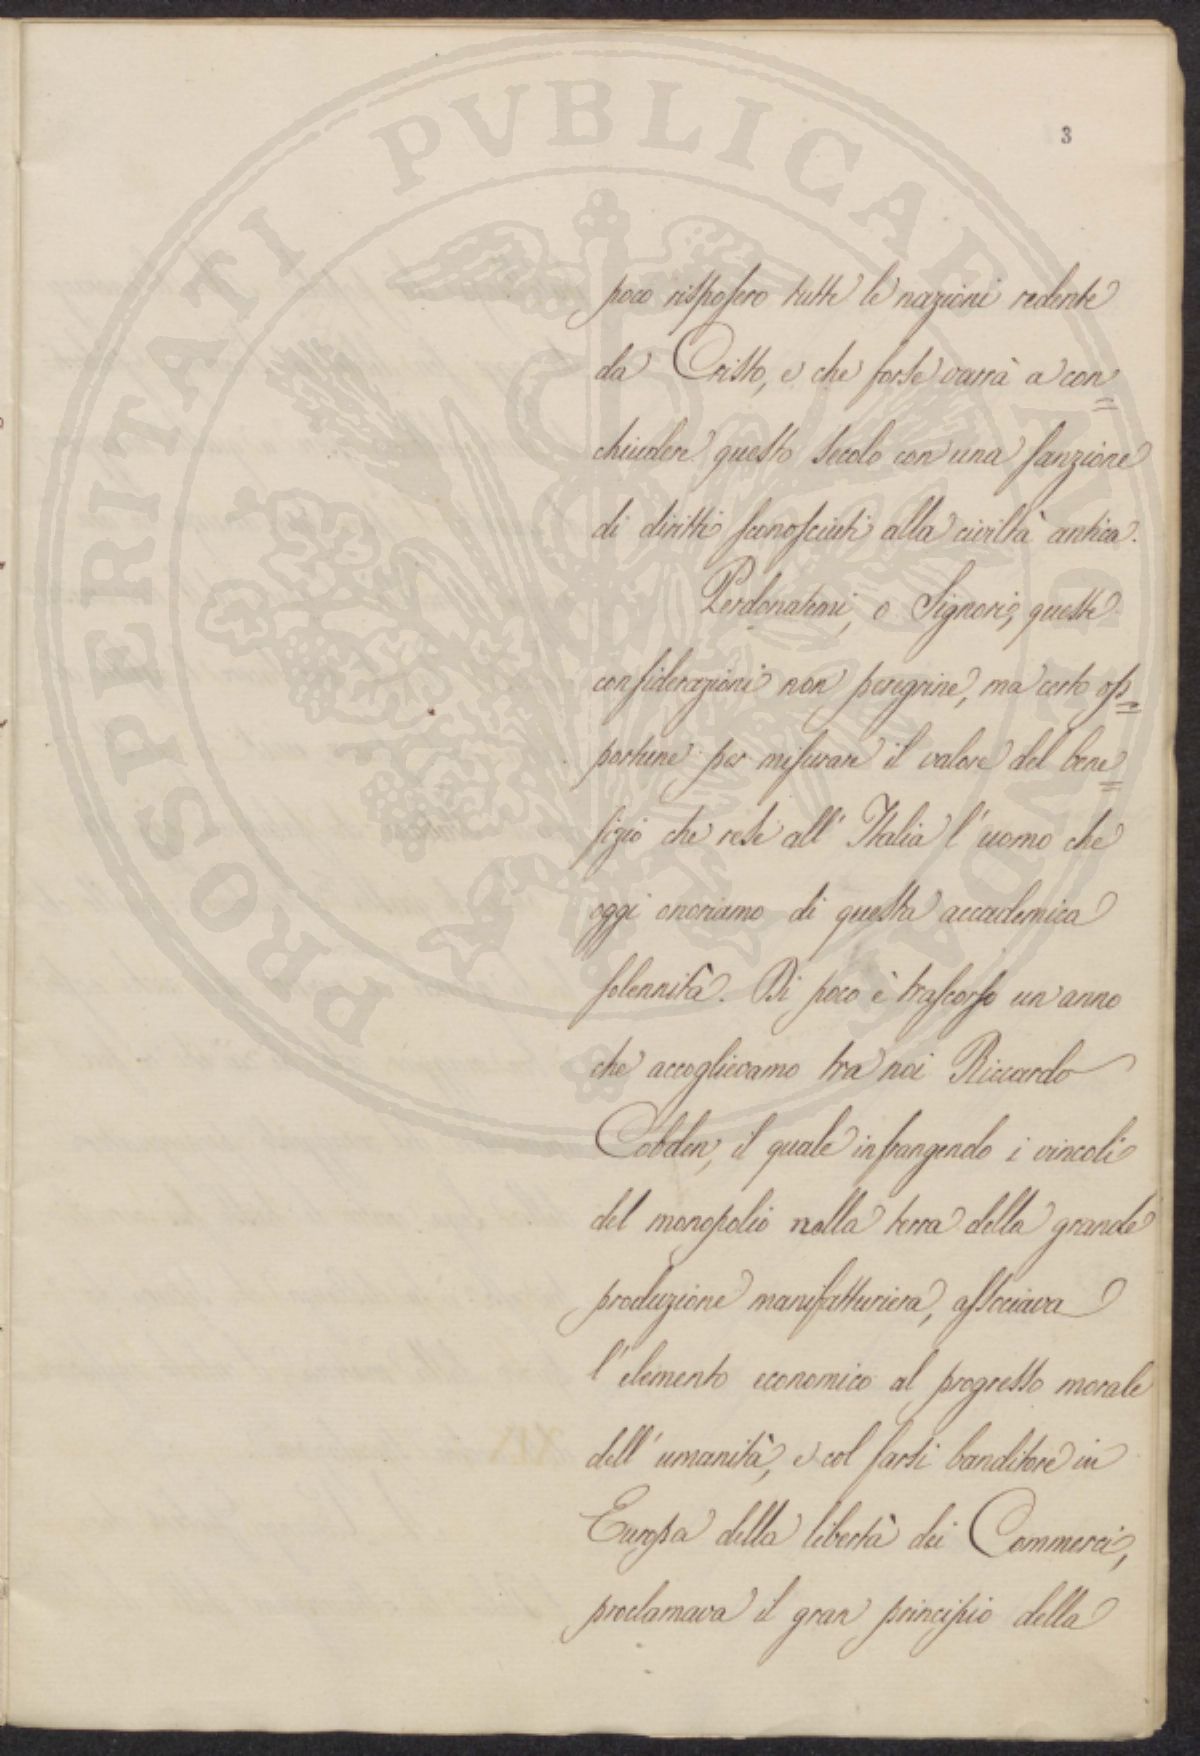 PROSPERITATI PVBLICAE AVGENDAE
3
poco risposero tutte le nazioni redente
da Cristo, e che forse varrà a con=
chiudere questo secolo con una sanzione
di diritti sconosciuti alla civiltà antica.
Perdonatemi, o Signori, queste
considerazioni non peregrine, ma certo op=
portune per misurare il valore del bene=
fizio che rese all' Italia l' uomo che
oggi onoriamo di questa accademica
solennità. Di poco è trascorso un anno
che accoglievamo tra noi Riccardo
Cobden, il quale infrangendo i vincoli
del monopolio nella terra della grande
produzione manifatturiera, associava
l' elemento economico al progresso morale
dell' umanità, e col farsi banditore in
Europa della libertà dei Commerci,
proclamava il gran principio della